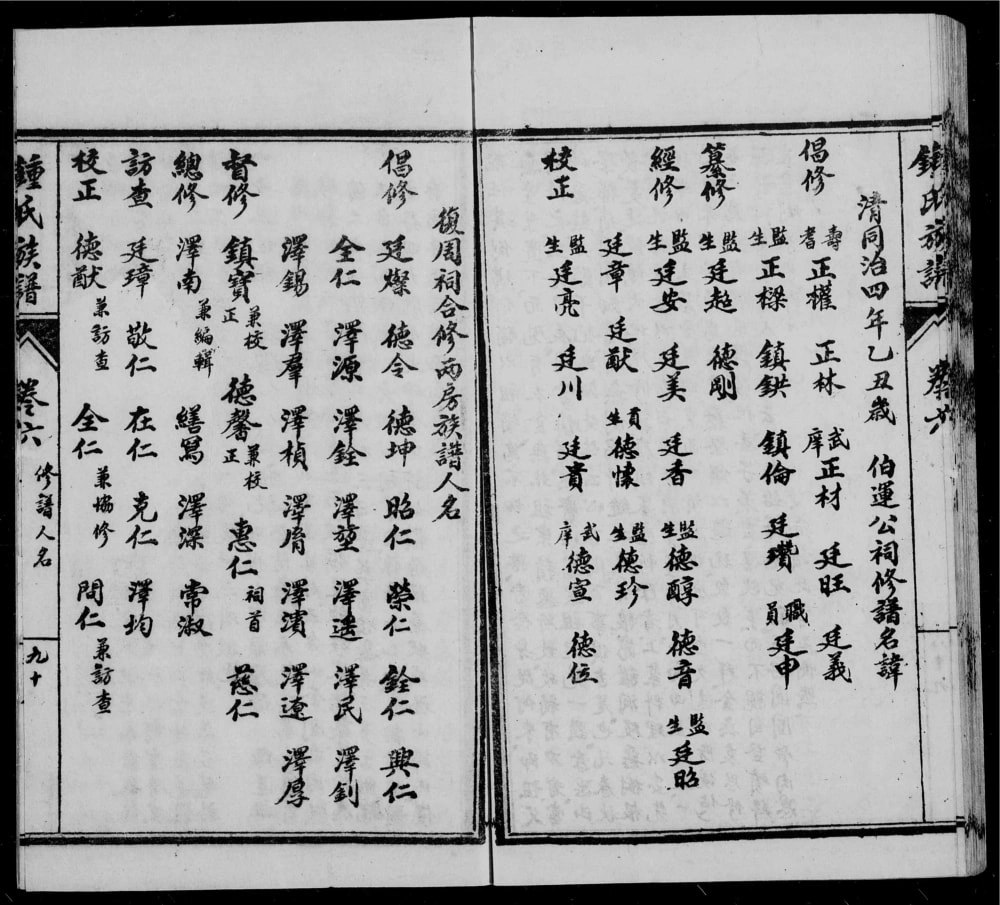 鍾氏族譜 卷六
清同治四年乙丑歲 伯運公祠修譜名諱
倡修 壽耆正權 正林 武庠正材 廷旺 廷義
監生正樑 鎮鉷 鎮倫 廷瓚 職員廷申
纂修 監生廷超 德剛
經修 監生廷安 廷美 廷香 監生德醇 德音 監生廷昭
廷章 廷猷 員生德懷 監生德珍
校正 監生廷亮 廷川 廷貴 武庠德宣 德位
復周祠合修兩房族譜人名
倡修 廷燦 德令 德坤 昭仁 榮仁 銓仁 興仁
全仁 澤源 澤銓 澤堃 澤遜 澤民 澤釗
澤錫 澤羣 澤楨 澤胷 澤濱 澤遼 澤厚
督修 鎮寶兼校正 德馨兼校正 惠仁祠首 慈仁
總修 澤南兼編輯 繕寫 澤深 常淑
訪查 廷璋 敬仁 在仁 克仁 澤均
校正 德猷兼訪查 全仁兼協修 問仁兼訪查
鍾氏族譜 卷六 修譜人名 九十